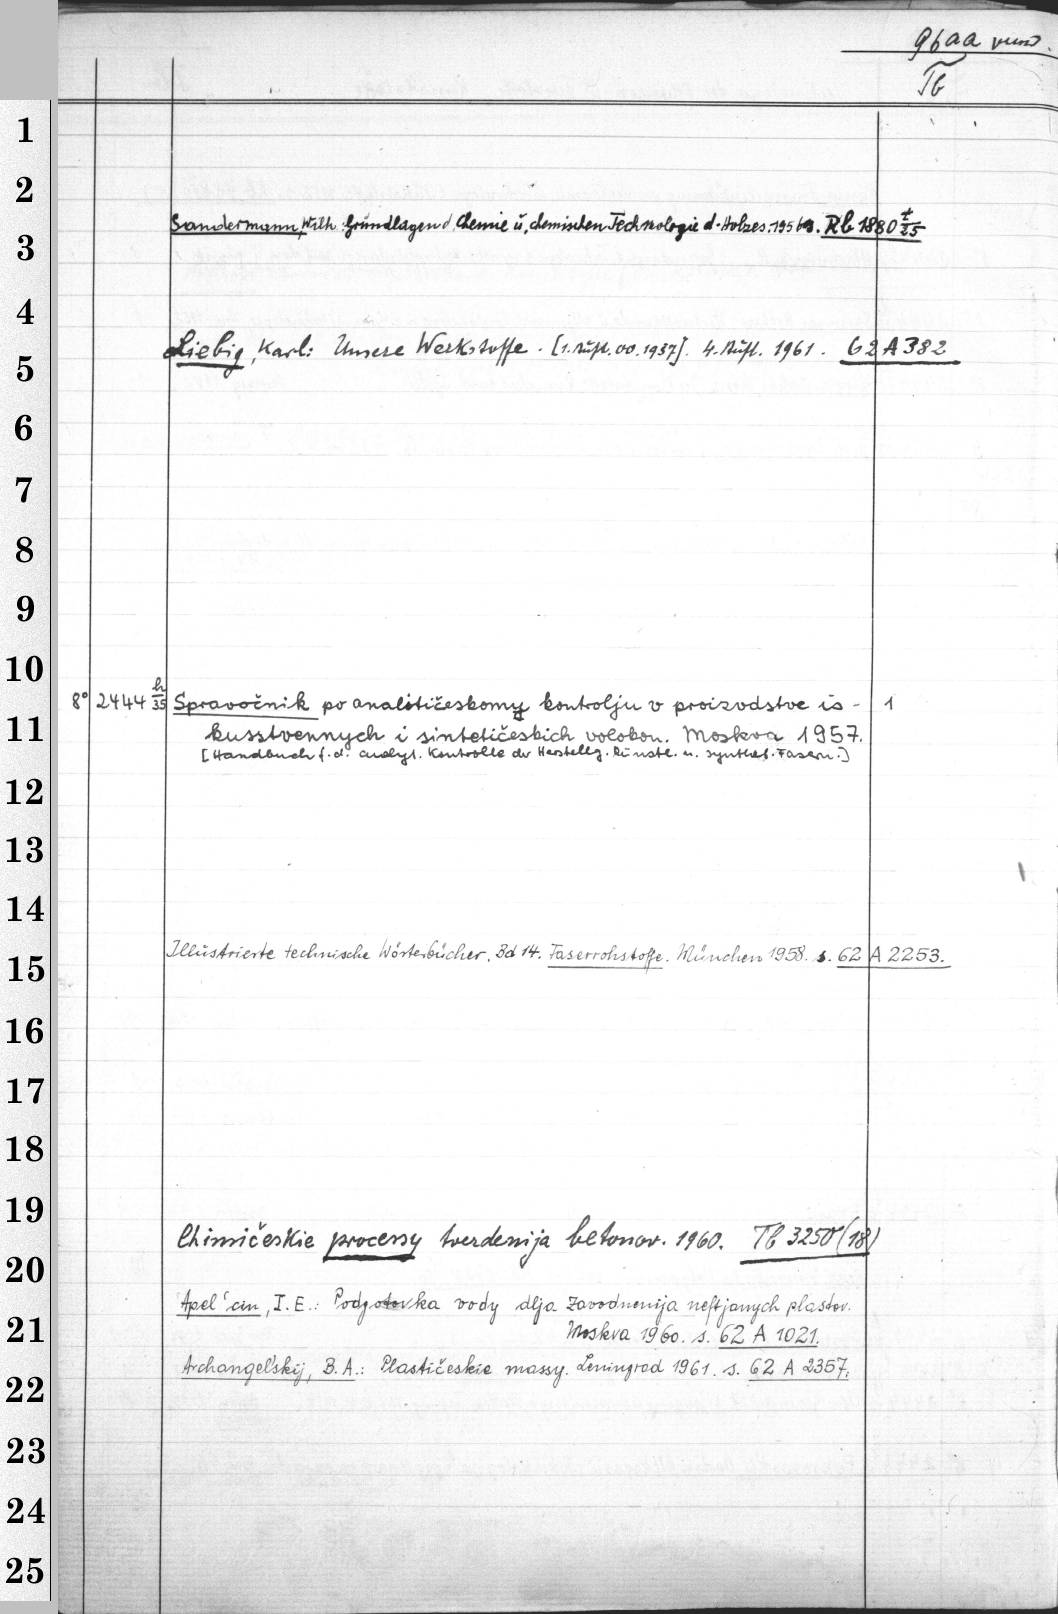 96aa
Tb
1
2
Sandermann, Wilh. Grundlagen d. Chemie u. chemischen Technologie d. Holzes. 1956 s. Rb 1880 t/25
3
4
Liebig, Karl: Unsere Werkstoffe. [1. Aufl. 00. 1937]. 4. Aufl. 1961. 62 A 382
5
6
7
8
9
10
8° 2444 h/35 Spravočnik po analitičeskomy kontrolju v proizvodstve is- 1
11 kusstvennych i sintetičeskich volokon. Moskva 1957.
[Handbuch f. d. analyt. Kontrolle der Herstellg. künstl. u. synthet. Fasern.]
12
13
14
Illustrierte technische Wörterbücher. Bd 14. Faserrohstoffe. München 1958. s. 62 A 2253.
15
16
17
18
19
Chimičeskie processy tverdenija betonov. 1960. Tb 3250 (18)
20
Apel'cin, I. E.: Podgotovka vody dlja zavodnenija neftjanych plastov.
21 Moskva 1960. s. 62 A 1021.
Archangel'skij, B. A.: Plastičeskie massy. Leningrad 1961. s. 62 A 2357.
22
23
24
25